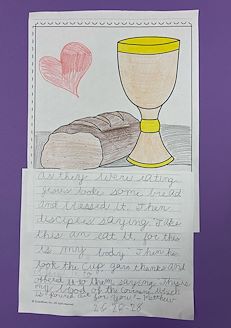 As they were eating
Jesus took some bread
and blessed it. Then
disciples saying Take
this an eat it, for this
is my body Then he
took the cup gave thanks and
offered it to them saying This is
my blood of the
is poured out for you! - Matthew
26:26-28